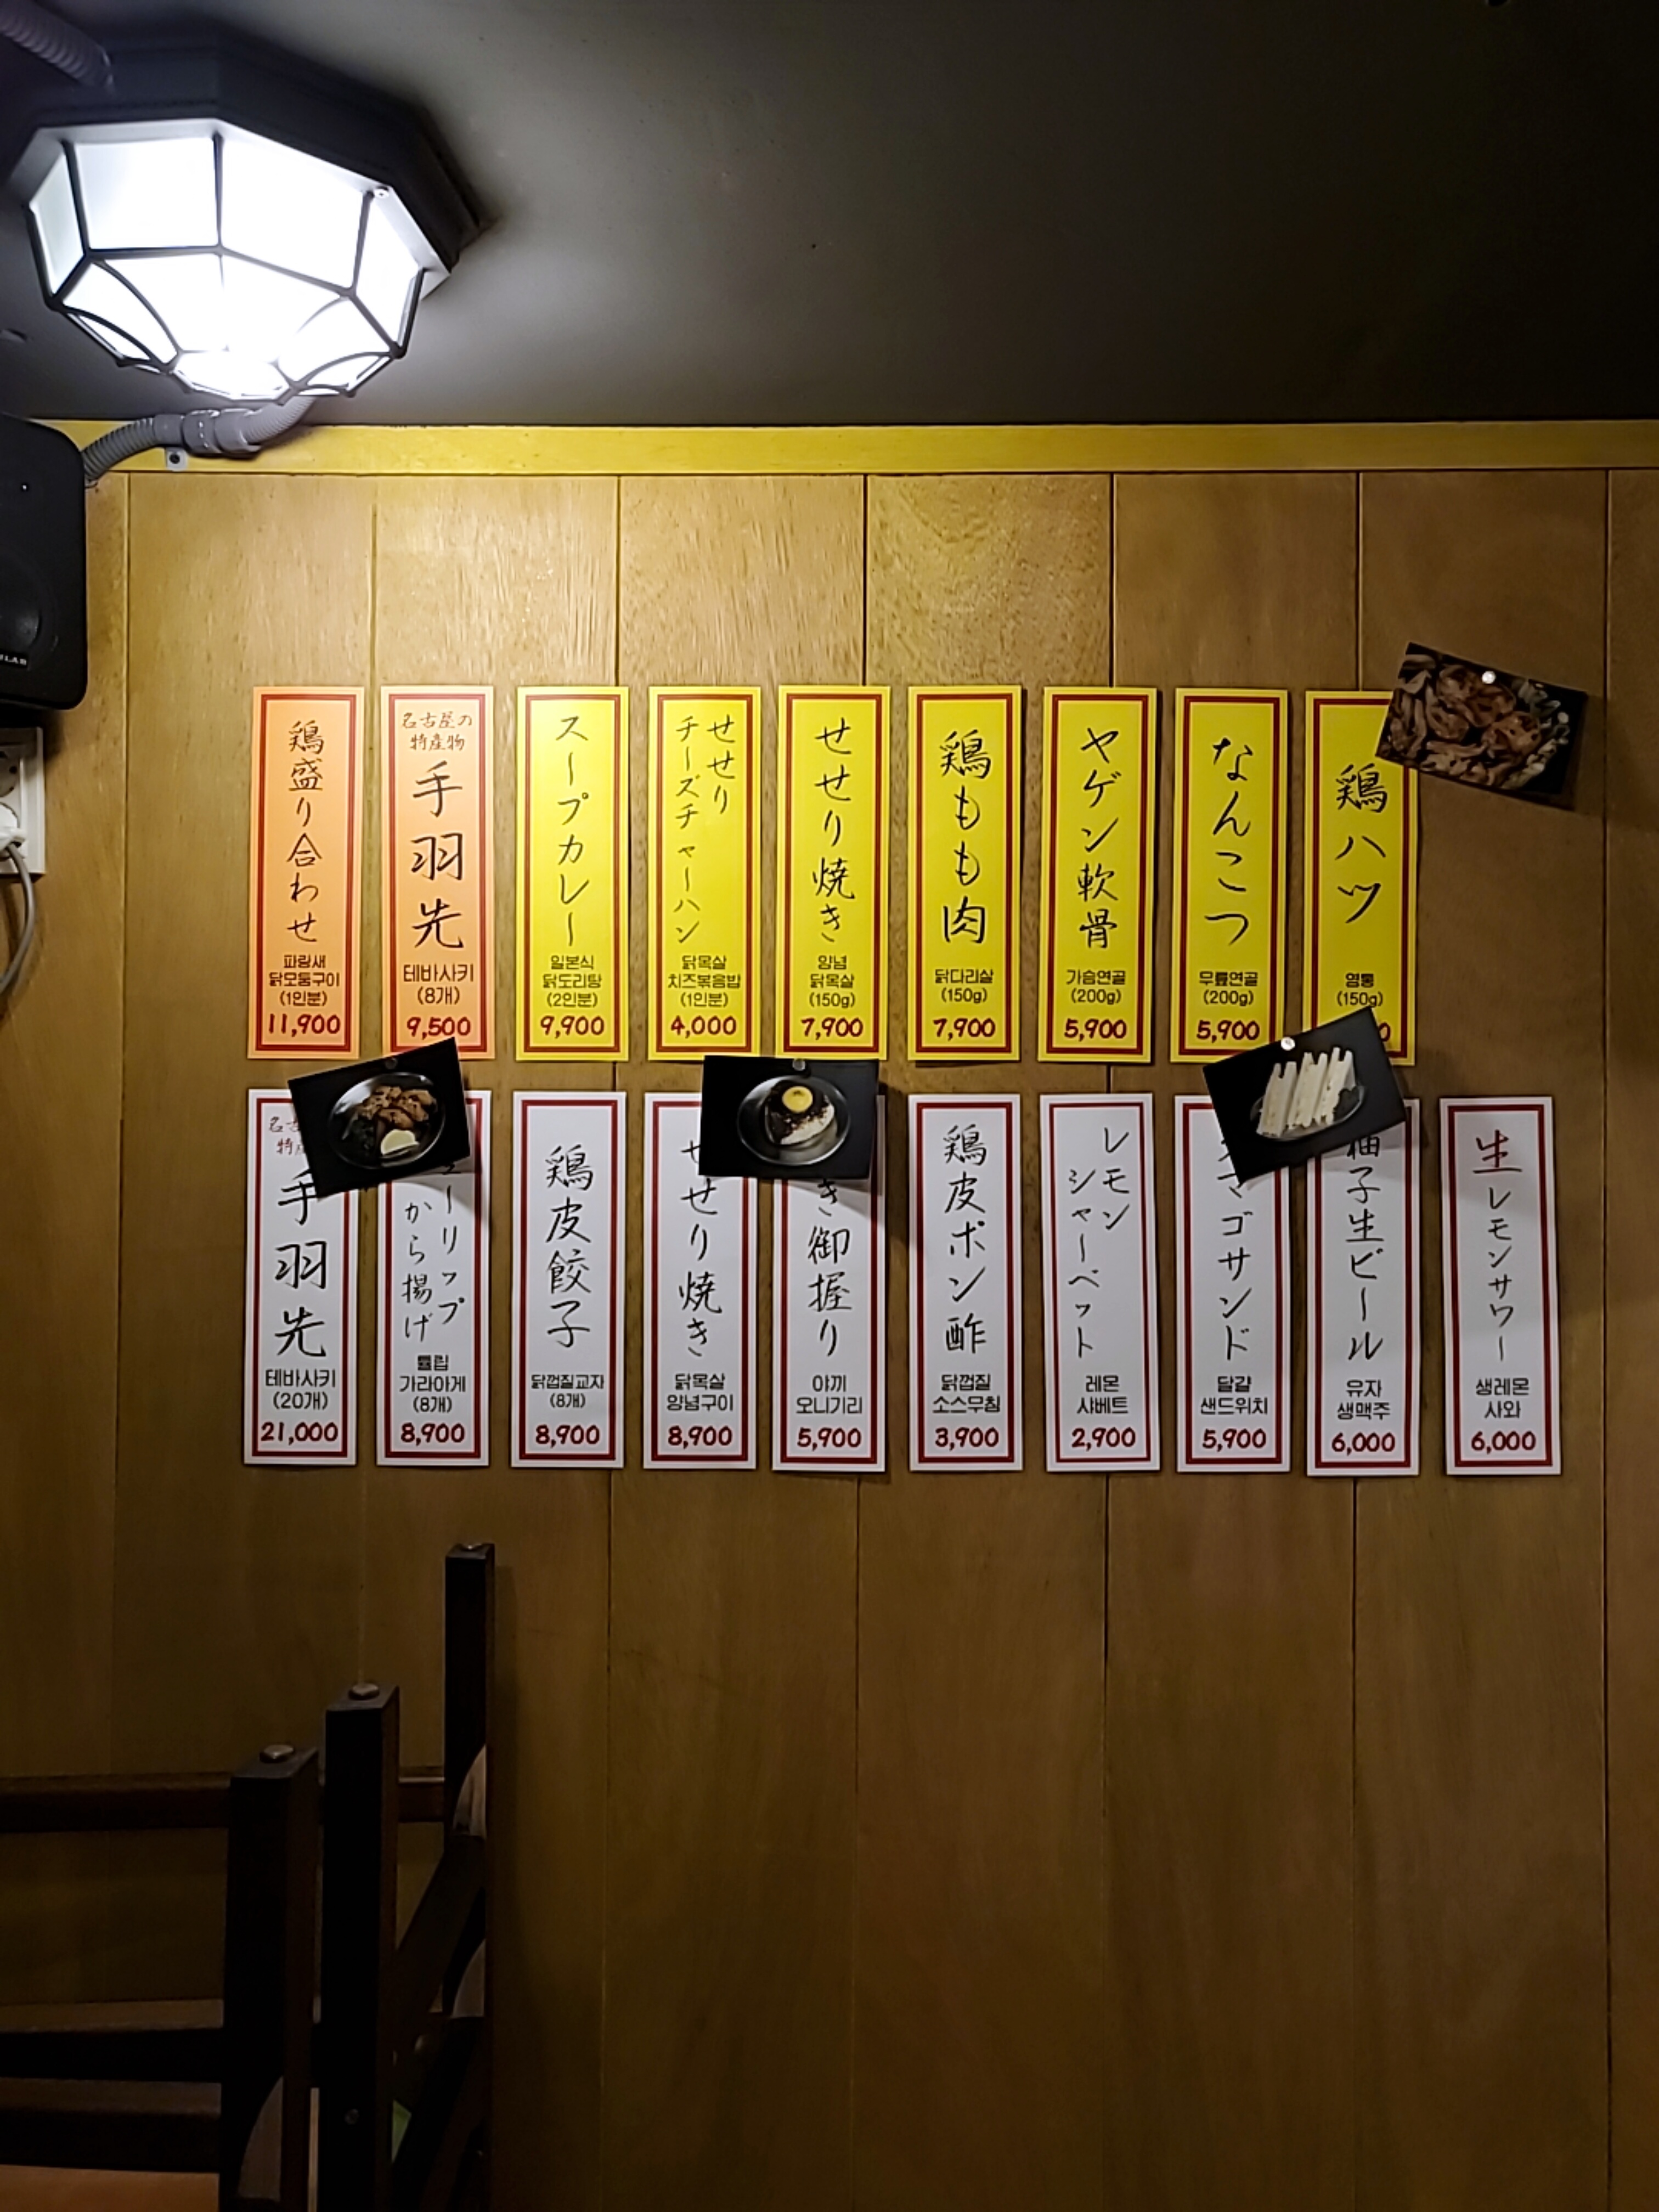 鶏盛り合わせ
파랑새
닭모둠구이
(1인분)
11,900
名古屋の
特産物
手羽先
테바사키
(8개)
9,500
スープカレー
일본식
닭도리탕
(2인분)
9,900
せせり
チーズチャーハン
닭목살
치즈볶음밥
(1인분)
4,000
せせり焼き
양념
닭목살
(150g)
7,900
鶏もも肉
닭다리살
(150g)
7,900
ヤゲン軟骨
가슴연골
(200g)
5,900
なんこつ
무릎연골
(200g)
5,900
鶏ハツ
염통
(150g)
手羽先
테바사키
(20개)
21,000
ーリップ
から揚げ
튤립
가라아게
(8개)
8,900
鶏皮餃子
닭껍질교자
(8개)
8,900
せせり焼き
닭목살
양념구이
8,900
き御握り
야끼
오니기리
5,900
鶏皮ポン酢
닭껍질
소스무침
3,900
レモン
シャーベット
레몬
샤베트
2,900
ゴサンド
달걀
샌드위치
5,900
柚子生ビール
유자
생맥주
6,000
生レモンサワー
생레몬
사와
6,000